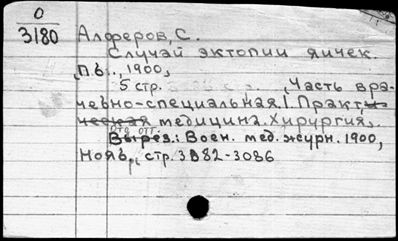 0
3180
Алферов, С.
Случай эктопии яичек.
П.б., 1900,
5 стр. (Часть вра-
чебно-специальная. I. Практи-
ческая медицина. Хирургия).
Отд. отт.
Вырез.: Воен. мед. журн. 1900,
Ноябр, стр. 3082-3086